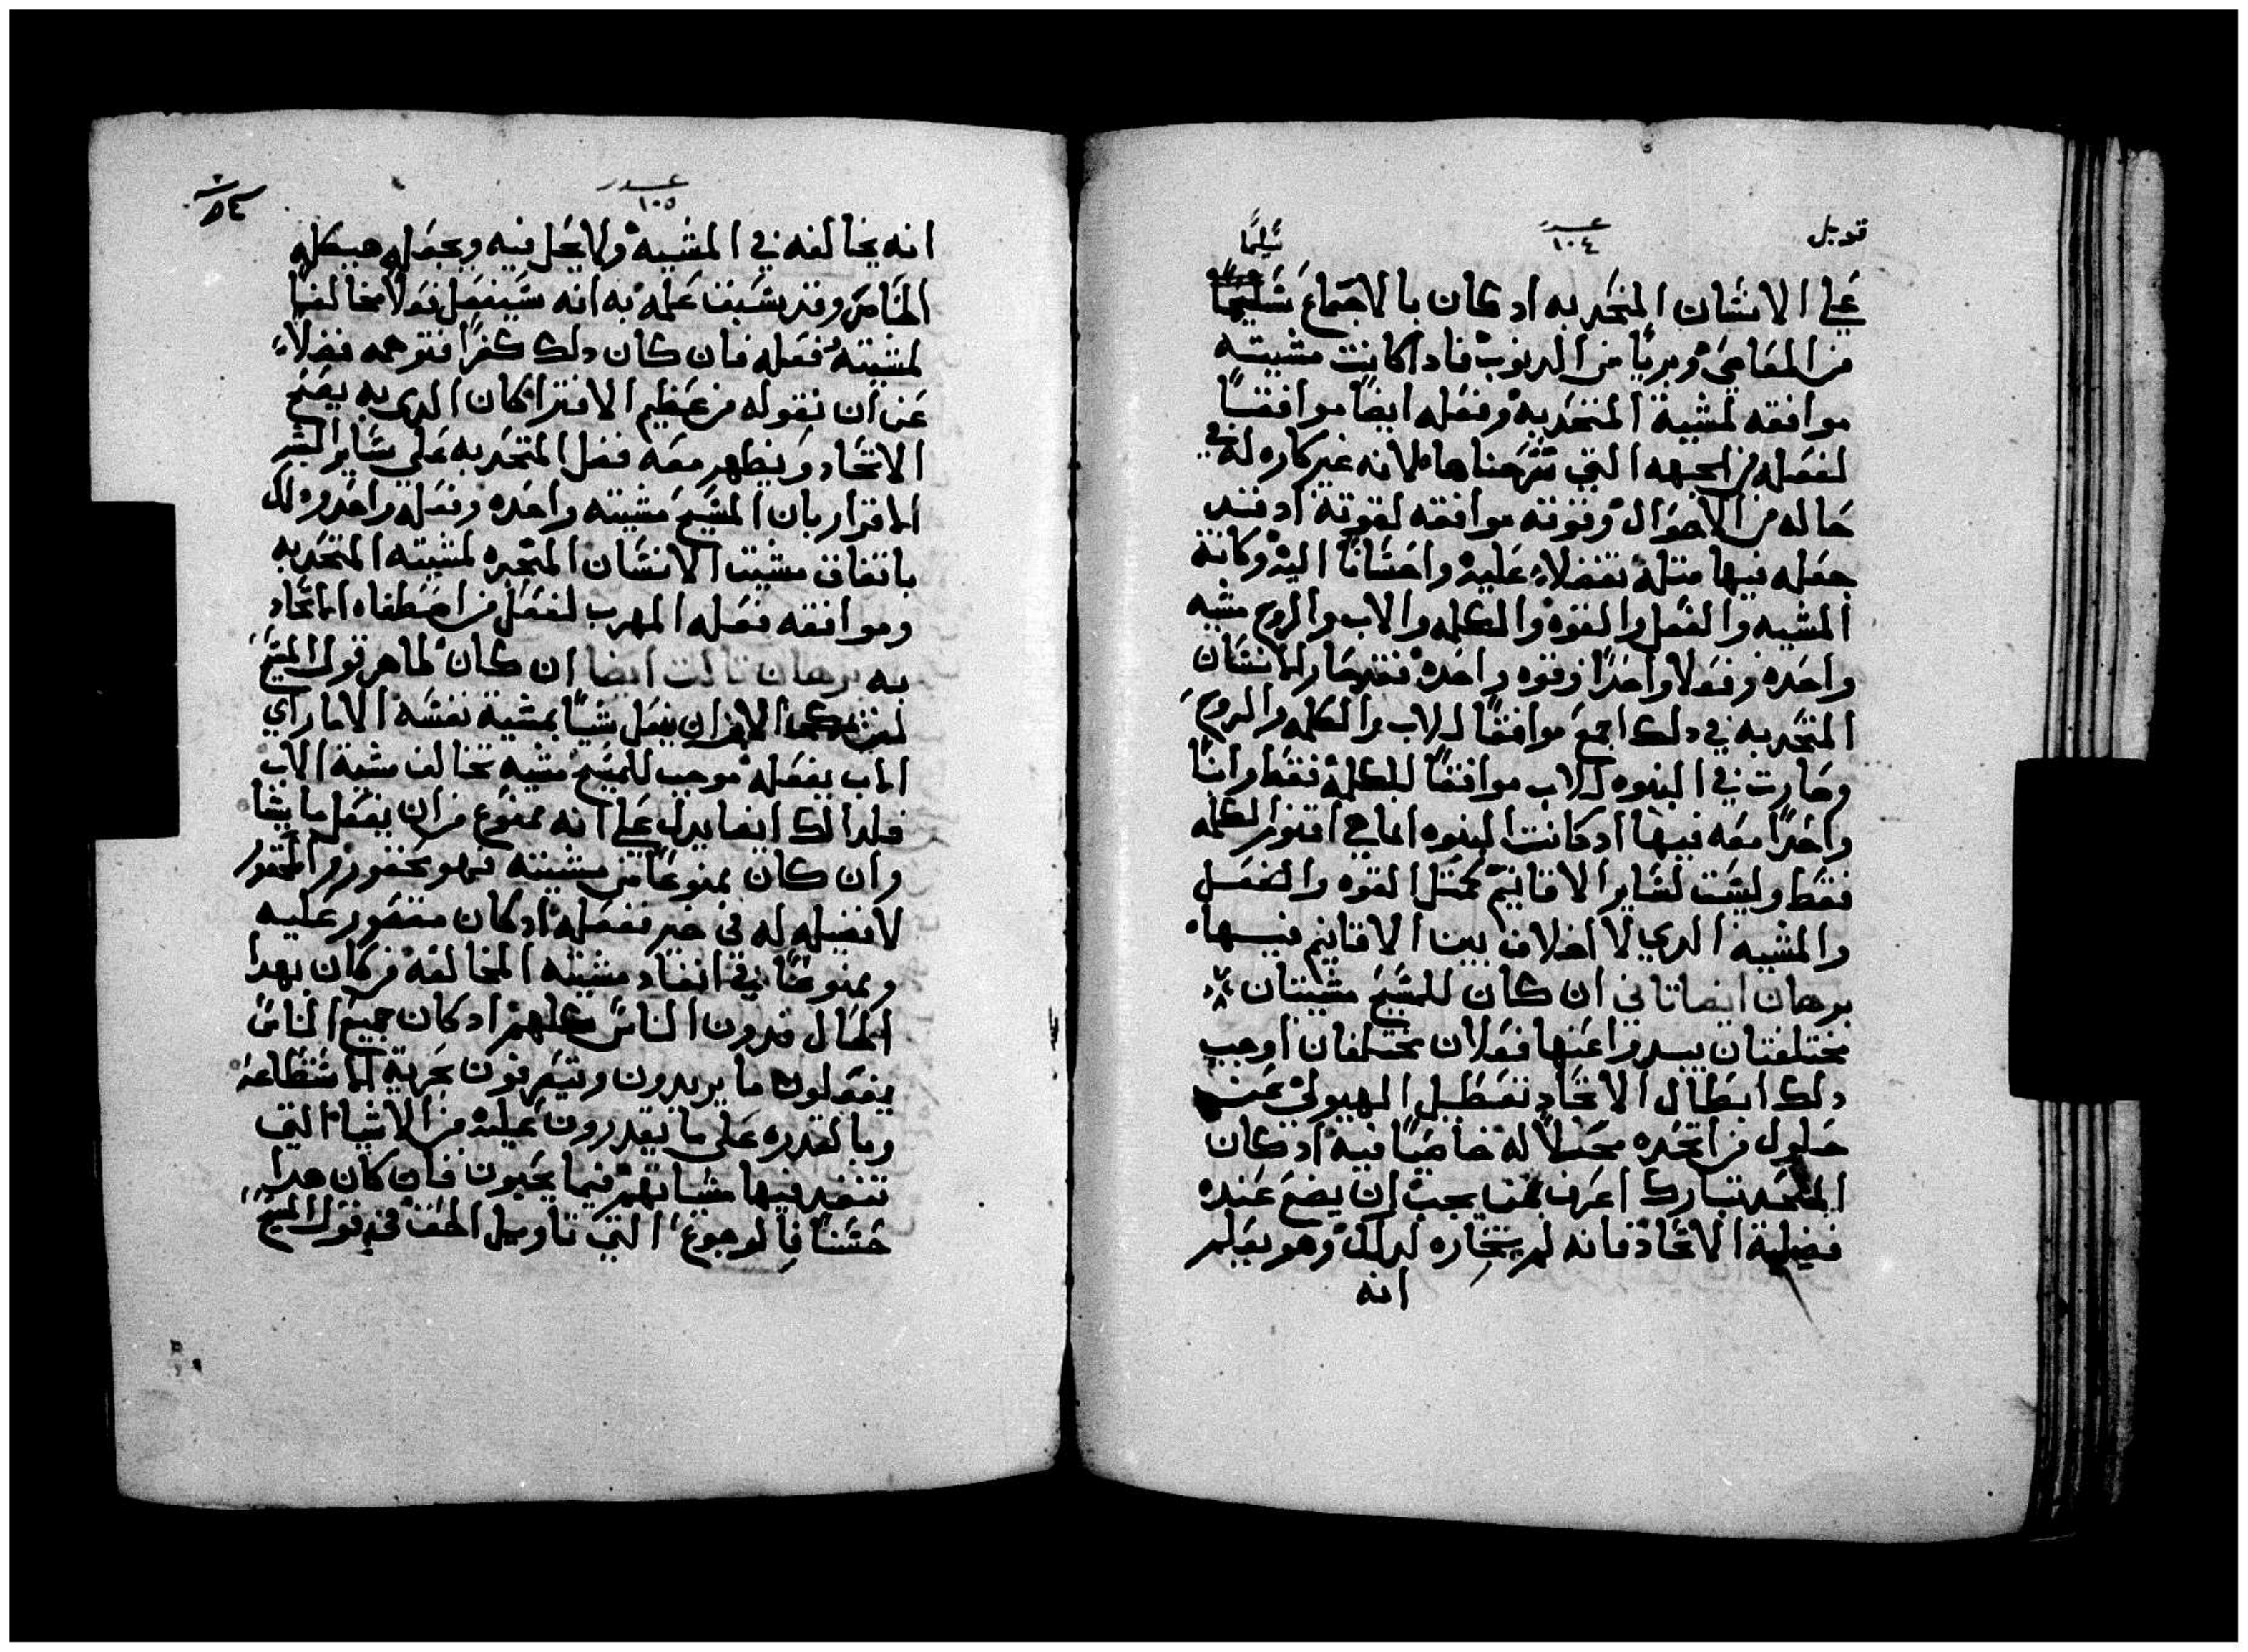 قوبل
عدد
١٠٤
سليمًا
علي الانسان المتحد به اد كان بالاجماع سليمًا
من المعاصي وبريًا من الدنوب فاداكانت مشيته
موافقه لمشية المتحد به وفعله ايضًا موافقًا
لفعله من الجهه التي شرحناها لانه غير كاره له في
حاله من الاحوال وقوته موافقه لقوته اد قد
جعله فيها مثله تفضلاً عليه واحسانًا اليه وكانة
المشيه والفعل والقوه والكلمه والاب والروح مشيه
واحده وفعلا واحدًا وقوه واحده فقد صار الانسان
المتحد به في دلك اجمع موافقًا للاب والكلمه والروح
وصارت في البنوه للاب موافقًا للكلمه فقط وابنًا
واحدًا معه فيها اد كانت البنوه انما هي اقنوم الكلمه
فقط وليست لساير الاقانيم كمثل القوه والفعل
والمشيه الدي لا اخلاف بين الاقانيم فيها
برهان ايضا تاني ان كان للمسيح مشيتان
مختلفتان يبدوا عنها فعلان مختلفان اوجب
دلك ابطال الاتحاد تعطيل الهيولي عن
حلول من اتخده محلاً له خاصيًا فيه اد كان
المتحد تبارك اعرف بمن يجب ان يضع عنده
فضيلة الاتحاد فانه لم يختاره لدلك وهو يعلم
انه
عدد
١٠٥
٨٤
انه يخالفه في المشيه ولا يحل فيه ويجعله هيكله
الخاص وقد سبقت علمه به انه سيفعل فعلاً مخالفًا
لمشيته فعله فان كان دلك كفرًا فتوهمه فضلاً
عن ان نقوله من عظيم الافترا كان الدي به يصح
الاتحاد ويظهر معه فضل المتحد به علي ساير البشر
الاقرار بان المسيح مشيته واحده وفعله واحد ودلك
باتفاق مشيت الانسان المتحد لمشيته المتحد به
وموافقه فعله المهرب لفعل من اصطفاه الاتحاد
به برهان تالت ايضا ان كان ظاهر قول المسيح
لن يمكن الابن ان يفعل شيًا بمشية نفسه الا ما راي
الاب يفعله موجب للمسيح مشيه تخالف مشية الاب
فلدالك ايضا يدل علي انه ممنوع من ان يفعل ما يشا
وان كان ممنوعًا من مشيته فهو مقهور والمقهور
لا فضيله له في خير يفعله اد كان مقهور عليه
وممنوعًا في انفاد مشيته المخالفه فركان بهدا
الحال فدون الناس كلهم اد كان جميع الناس
يفعلون ما يريدون ويتصرفون بحرية الاستطاعه
وبالقدره علي ما يقدرون عليه من الاشيا التي
تنفد فيها مشياتهم فيما يحبون فان كان هدا
حسنًا فالرجوع التي تاويل الحق في قول المسيح